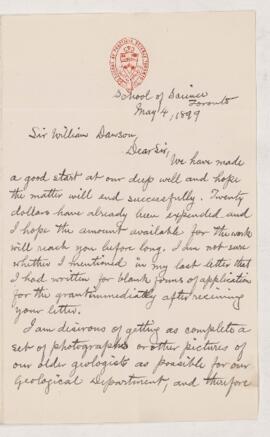 School of Science
Toronto
May 4, 1899
Sir William Dawson,
Dear Sir,
We have made
a good start at our deep well and hope
the matter will end successfully. Twenty
dollars have already been expended and
I hope the amount available for the work
will reach you before long. I am not sure
whether I mentioned in my last letter that
I had written for blank forms of application
for the grant immediately after receiving
your letter.
I am desirous of getting as complete a
set of photographs or other pictures of
our older geologists as possible for our
Geological Department, and therefore